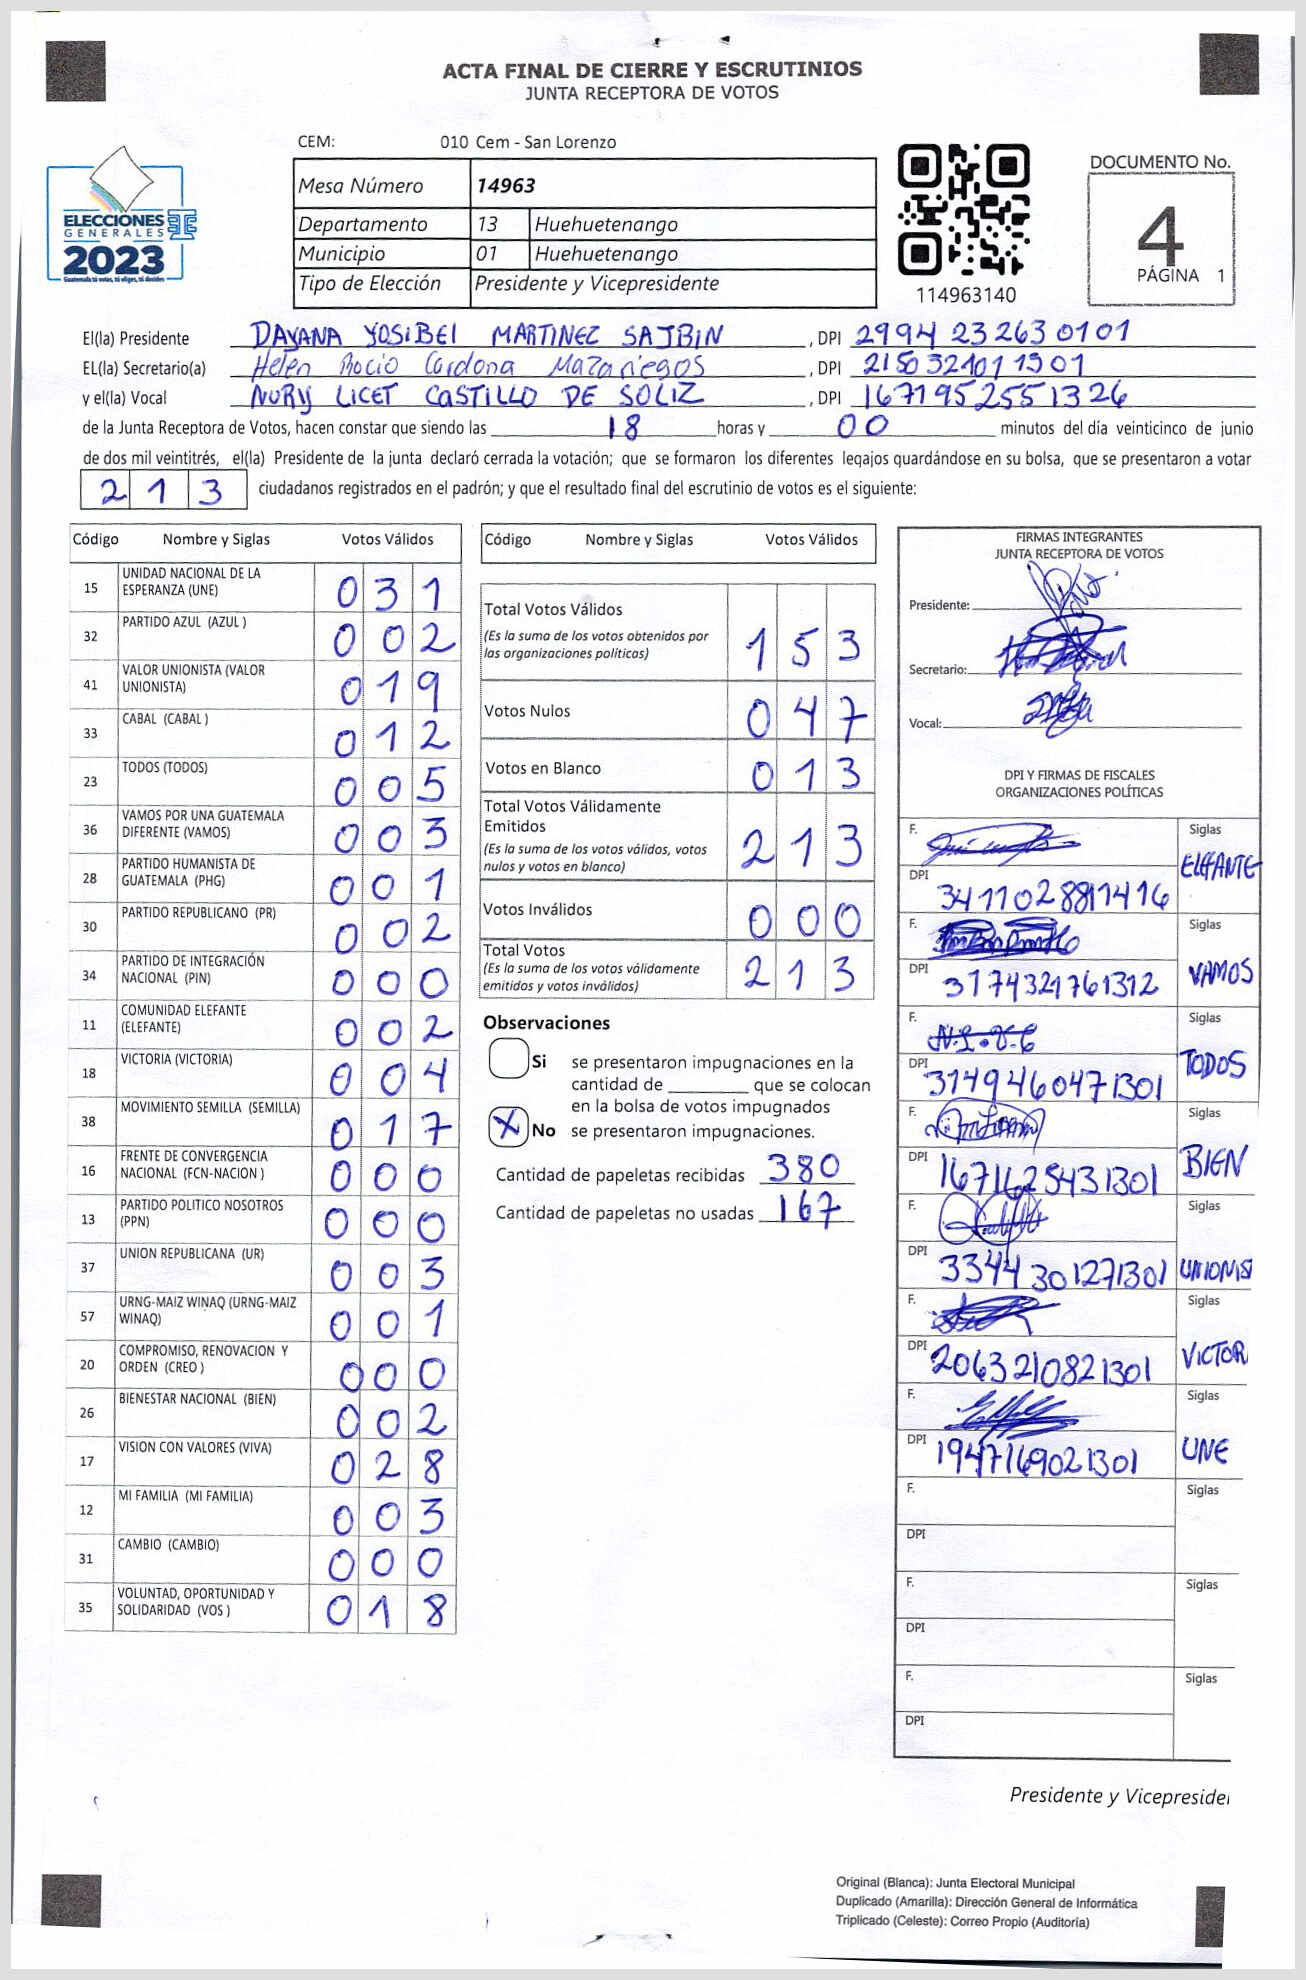 ACTA FINAL DE CIERRE Y ESCRUTINIOS
JUNTA RECEPTORA DE VOTOS
CEM: 010 Cem - San Lorenzo
ELECCIONES
GENERALES
2023
Guatemala tú votas, tú eliges, tú decides
Mesa Número 14963
Departamento 13 Huehuetenango
Municipio 01 Huehuetenango
Tipo de Elección Presidente y Vicepresidente
114963140
DOCUMENTO No.
4
PÁGINA 1
El(la) Presidente DAYANA YOSIBEL MARTINEZ SAJBIN , DPI 2994 23263 0101
EL(la) Secretario(a) Helen Rocio Cardona Mazariegos , DPI 2150321011301
y el(la) Vocal NURY LICET CASTILLO DE SOLIZ , DPI 1671952551326
de la Junta Receptora de Votos, hacen constar que siendo las 18 horas y 00 minutos del día veinticinco de junio
de dos mil veintitrés, el(la) Presidente de la junta declaró cerrada la votación; que se formaron los diferentes legajos guardándose en su bolsa, que se presentaron a votar
213 ciudadanos registrados en el padrón; y que el resultado final del escrutinio de votos es el siguiente:
Código Nombre y Siglas Votos Válidos
15 UNIDAD NACIONAL DE LA ESPERANZA (UNE) 031
32 PARTIDO AZUL (AZUL ) 002
41 VALOR UNIONISTA (VALOR UNIONISTA) 019
33 CABAL (CABAL ) 012
23 TODOS (TODOS) 005
36 VAMOS POR UNA GUATEMALA DIFERENTE (VAMOS) 003
28 PARTIDO HUMANISTA DE GUATEMALA (PHG) 001
30 PARTIDO REPUBLICANO (PR) 002
34 PARTIDO DE INTEGRACIÓN NACIONAL (PIN) 000
11 COMUNIDAD ELEFANTE (ELEFANTE) 002
18 VICTORIA (VICTORIA) 004
38 MOVIMIENTO SEMILLA (SEMILLA) 017
16 FRENTE DE CONVERGENCIA NACIONAL (FCN-NACION ) 000
13 PARTIDO POLITICO NOSOTROS (PPN) 000
37 UNION REPUBLICANA (UR) 003
57 URNG-MAIZ WINAQ (URNG-MAIZ WINAQ) 001
20 COMPROMISO, RENOVACION Y ORDEN (CREO ) 000
26 BIENESTAR NACIONAL (BIEN) 002
17 VISION CON VALORES (VIVA) 028
12 MI FAMILIA (MI FAMILIA) 003
31 CAMBIO (CAMBIO) 000
35 VOLUNTAD, OPORTUNIDAD Y SOLIDARIDAD (VOS ) 018
Código Nombre y Siglas Votos Válidos
Total Votos Válidos 153
(Es la suma de los votos obtenidos por
las organizaciones políticas)
Votos Nulos 047
Votos en Blanco 013
Total Votos Válidamente
Emitidos 213
(Es la suma de los votos válidos, votos
nulos y votos en blanco)
Votos Inválidos 000
Total Votos 213
(Es la suma de los votos válidamente
emitidos y votos inválidos)
Observaciones
Si se presentaron impugnaciones en la
cantidad de ________ que se colocan
en la bolsa de votos impugnados
X No se presentaron impugnaciones.
Cantidad de papeletas recibidas 380
Cantidad de papeletas no usadas 167
FIRMAS INTEGRANTES
JUNTA RECEPTORA DE VOTOS
Presidente:
Secretario:
Vocal:
DPI Y FIRMAS DE FISCALES
ORGANIZACIONES POLÍTICAS
F. Siglas ELEFANTE
DPI 3411028811416
F. Siglas VAMOS
DPI 3174321761312
F. Siglas TODOS
DPI 3149460471301
F. Siglas BIEN
DPI 1671625431301
F. Siglas UNIONIS
DPI 3344301271301
F. Siglas VICTOR
DPI 2063210821301
F. Siglas UNE
DPI 1947169021301
F. Siglas
DPI
F. Siglas
DPI
F. Siglas
DPI
Presidente y Vicepreside
Original (Blanca): Junta Electoral Municipal
Duplicado (Amarilla): Dirección General de Informática
Triplicado (Celeste): Correo Propio (Auditoría)